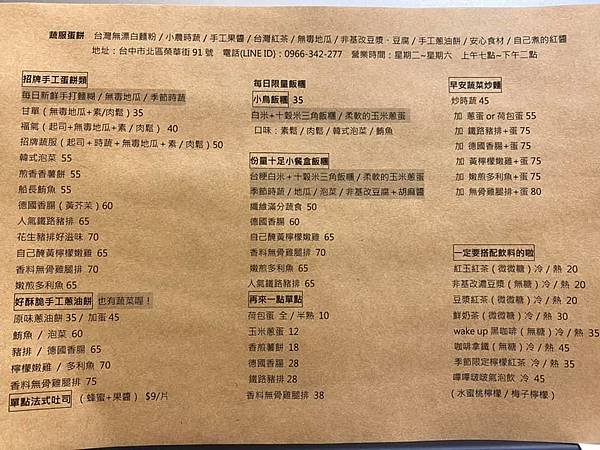 蔬服蛋餅 台灣無漂白麵粉 / 小農時蔬 / 手工果醬 / 台灣紅茶 / 無毒地瓜 / 非基改豆漿、豆腐 / 手工蔥油餅 / 安心食材 / 自己煮的紅醬
地址：台中市北區榮華街91號 電話(LINE ID)：0966-342-277 營業時間：星期二~星期六 上午七點~下午二點
招牌手工蛋餅類
每日新鮮手打麵糊 / 無毒地瓜 / 季節時蔬
甘單 (無毒地瓜+素/肉鬆)35
福氣 (起司+無毒地瓜+素 / 肉鬆) 40
招牌蔬服 (起司+時蔬+無毒地瓜+素 / 肉鬆)50
韓式泡菜 55
煎香香薯餅 55
船長鮪魚 55
德國香腸 (黃芥茉) 60
人氣鐵路豬排 65
花生豬排好滋味 70
自己醃黃檸檬嫩雞 65
香料無骨雞腿排 70
嫩煎多利魚 65
好酥脆手工蔥油餅 也有蔬菜喔！
原味蔥油餅 35 / 加蛋 45
鮪魚 / 泡菜 60
豬排 / 德國香腸 65
檸檬嫩雞 / 多利魚 70
香料無骨雞腿排 75
單點法式吐司 (蜂蜜+果醬) $9/片
每日限量飯糰
小鳥飯糰 35
白米+十穀米三角飯糰 / 柔軟的玉米蔥蛋
口味：素鬆 / 肉鬆 / 韓式泡菜 / 鮪魚
份量十足小餐盒飯糰
台梗白米+十穀米三角飯糰 / 柔軟的玉米蔥蛋
季節時蔬 / 地瓜 / 泡菜 / 非基改豆腐+胡麻醬
纖維滿分蔬食 50
德國香腸 60
自己醃黃檸檬嫩雞 65
香料無骨雞腿排 70
嫩煎多利魚 65
人氣鐵路豬排 65
再來一點單點
荷包蛋 全 / 半熟 10
玉米蔥蛋 12
香煎薯餅 18
德國香腸 28
鐵路豬排 28
香料無骨雞腿排 38
早安蔬菜炒麵
炒時蔬 45
加 蔥蛋 or 荷包蛋 55
加 鐵路豬排+蛋 75
加 德國香腸+蛋 75
加 黃檸檬嫩雞+蛋 75
加 嫩煎多利魚+蛋 75
加 無骨雞腿排+蛋 80
一定要搭配飲料的啦
紅玉紅茶 (微微糖) 冷 / 熱 20
非基改濃豆漿 (無糖) 冷 / 熱 20
豆漿紅茶 (微微糖) 冷 / 熱 20
鮮奶茶 (微微糖) 冷 / 熱 30
wake up 黑咖啡 (無糖) 冷 / 熱 35
咖啡拿鐵 (無糖) 冷 / 熱 45
季節限定檸檬紅茶 冷 / 熱 35
嗶嗶啵啵氣泡飲 冷 45
(水蜜桃檸檬 / 梅子檸檬)